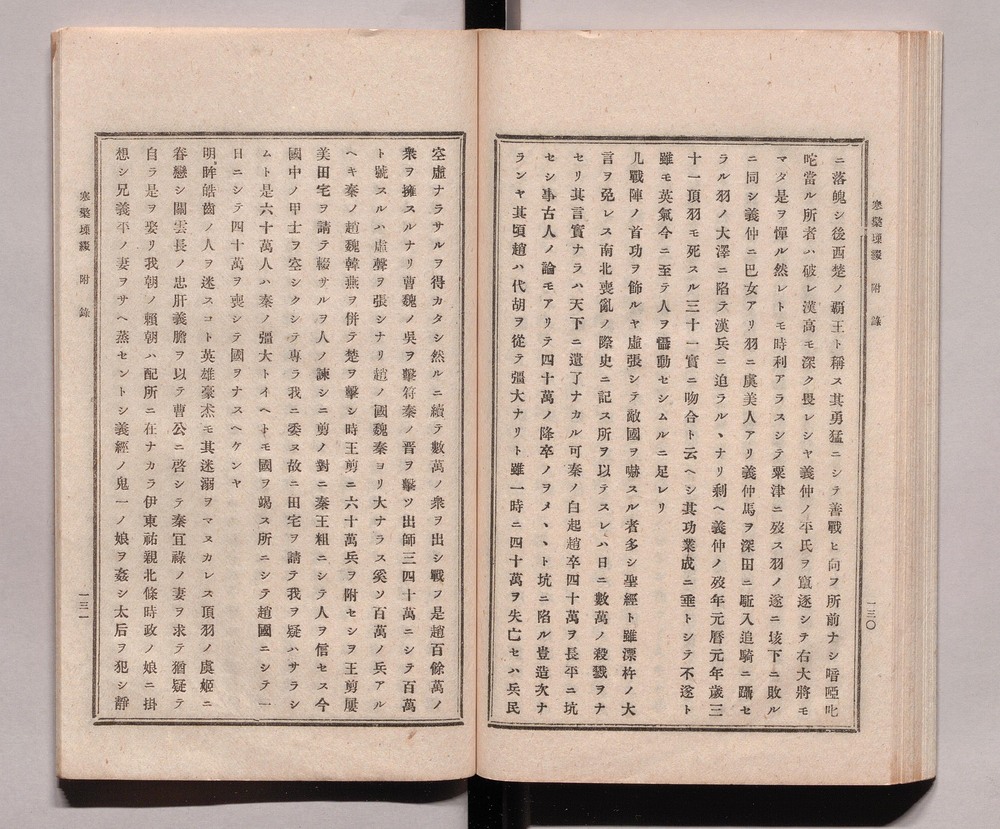 寒檠璅綴　附　錄
一三〇
ニ落魄シ後西楚ノ覇王ト稱ス其勇猛ニシテ善戰ヒ向フ所前ナシ喑啞叱
咤當ル所者ハ破レ漢高モ深ク畏レシヤ義仲ノ平氏ヲ竄逐シテ右大將モ
マタ是ヲ憚ル然レトモ時利アラスシテ粟津ニ歿ス羽ノ遂ニ垓下ニ敗ル
ニ同シ義仲ニ巴女アリ羽ニ虞美人アリ義仲馬ヲ深田ニ駈入追騎ニ躡セ
ラル羽ノ大澤ニ陷テ漢兵ニ迫ラルヽナリ剩ヘ義仲ノ歿年元曆元年歲三
十一項羽モ死スル三十一實ニ吻合ト云ヘシ其功業成ニ垂トシテ不遂ト
雖モ英氣今ニ至テ人ヲ懾動セシムルニ足レリ
凡戰陣ノ首功ヲ飾ルヤ虛張シテ敵國ヲ嚇スル者多シ聖經ト雖漂杵ノ大
言ヲ免レス南北喪亂ノ際史ニ記ス所ヲ以テスレハ日ニ數萬ノ殺戮ヲナ
セリ其言實ナラハ天下ニ遺了ナカル可秦ノ白起趙卒四十萬ヲ長平ニ坑
セシ事古人ノ論モアリテ四十萬ノ降卒ノヲメヽヽト坑ニ陷ル豈造次ナ
ランヤ其頃趙ハ代胡ヲ從テ彊大ナリト雖一時ニ四十萬ヲ失亡セハ兵民
空虛ナラサルヲ得カタシ然ルニ續テ數萬ノ衆ヲ出シ戰フ是趙百餘萬ノ
衆ヲ擁スルナリ曹魏ノ吳ヲ擊符秦ノ晋ヲ擊ツ出師三四十萬ニシテ百萬
ト號スルハ虛聲ヲ張シナリ趙ノ國魏秦ヨリ大ナラス奚ソ百萬ノ兵アル
ヘキ秦ノ趙魏韓燕ヲ併テ楚ヲ擊シ時王剪ニ六十萬兵ヲ附セシヲ王剪屢
美田宅ヲ請テ輟サルヲ人ノ諫シニ剪ノ對ニ秦王粗ニシテ人ヲ信セス今
國中ノ甲士ヲ空シクシテ專ラ我ニ委ヌ故ニ田宅ヲ請テ我ヲ疑ハサラシ
ムト是六十萬人ハ秦ノ彊大トイヘトモ國ヲ竭ス所ニシテ趙國ニシテ一
日ニシテ四十萬ヲ喪シテ國ヲナスヘケンヤ
明眸皓齒ノ人ヲ迷スコト英雄豪杰モ其迷溺ヲマヌカレス項羽ノ虞姬ニ
眷戀シ關雲長ノ忠肝義膽ヲ以テ曹公ニ啓シテ秦宜祿ノ妻ヲ求テ猶疑テ
自ラ是ヲ娶リ我朝ノ賴朝ハ配所ニ在ナカラ伊東祐親北條時政ノ娘ニ掛
想シ兄義平ノ妻ヲサヘ蒸セントシ義經ノ鬼一ノ娘ヲ姦シ太后ヲ犯シ靜
寒檠璅綴　附　錄
一三一